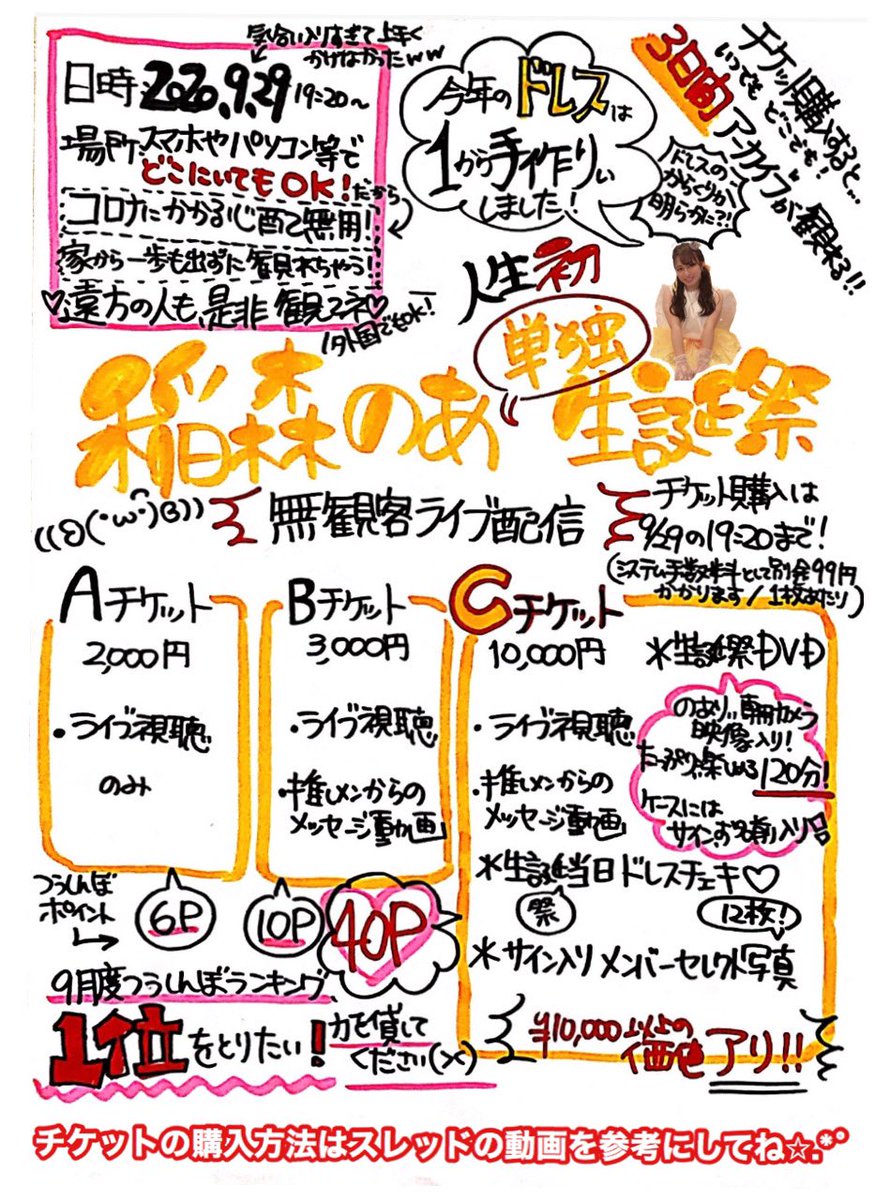 気合い入りすぎて上手く
かけなかったww
日時 2020.9.29 19:20~
場所:スマホやパソコン等で
どこにいてもOK!だから
コロナにかかる心配も無用!
家から一歩も出ずに観れちゃう!
♡遠方の人も是非観てネ♡
外国でもOK!
今年のドレスは
1から手作りぃ
しました!
チケット購入すると…
いつでもどこでも!
3日間アーカイブが観れる!!
ドレスの
からくりが
明らかに?!
人生初
単独
稲森のあ 生誕祭
((8(・ω・)8))
無観客ライブ配信
チケット購入は
9/29の19:20まで!
(システム手数料として別途99円
かかります/1枚あたり)
Aチケット
2,000円
・ライブ視聴
のみ
Bチケット
3,000円
・ライブ視聴
・推しメンからの
メッセージ動画
Cチケット
10,000円
・ライブ視聴
・推しメンからの
メッセージ動画
*生誕祭DVD
のあり専用カメラ
映像入り!
たっぷり楽しめる
120分!
ケースには
サイン
*生誕当日ドレスチェキ♡
祭
12枚!
*サイン入りメンバーセレクト写真
¥10,000以上の
価値アリ!!
つうしんぼ
ポイント
6P
10P
40P
9月度つうしんぼランキング、
1位をとりたい!
力を貸して
ください(><)
チケットの購入方法はスレッドの動画を参考にしてね☆.*°